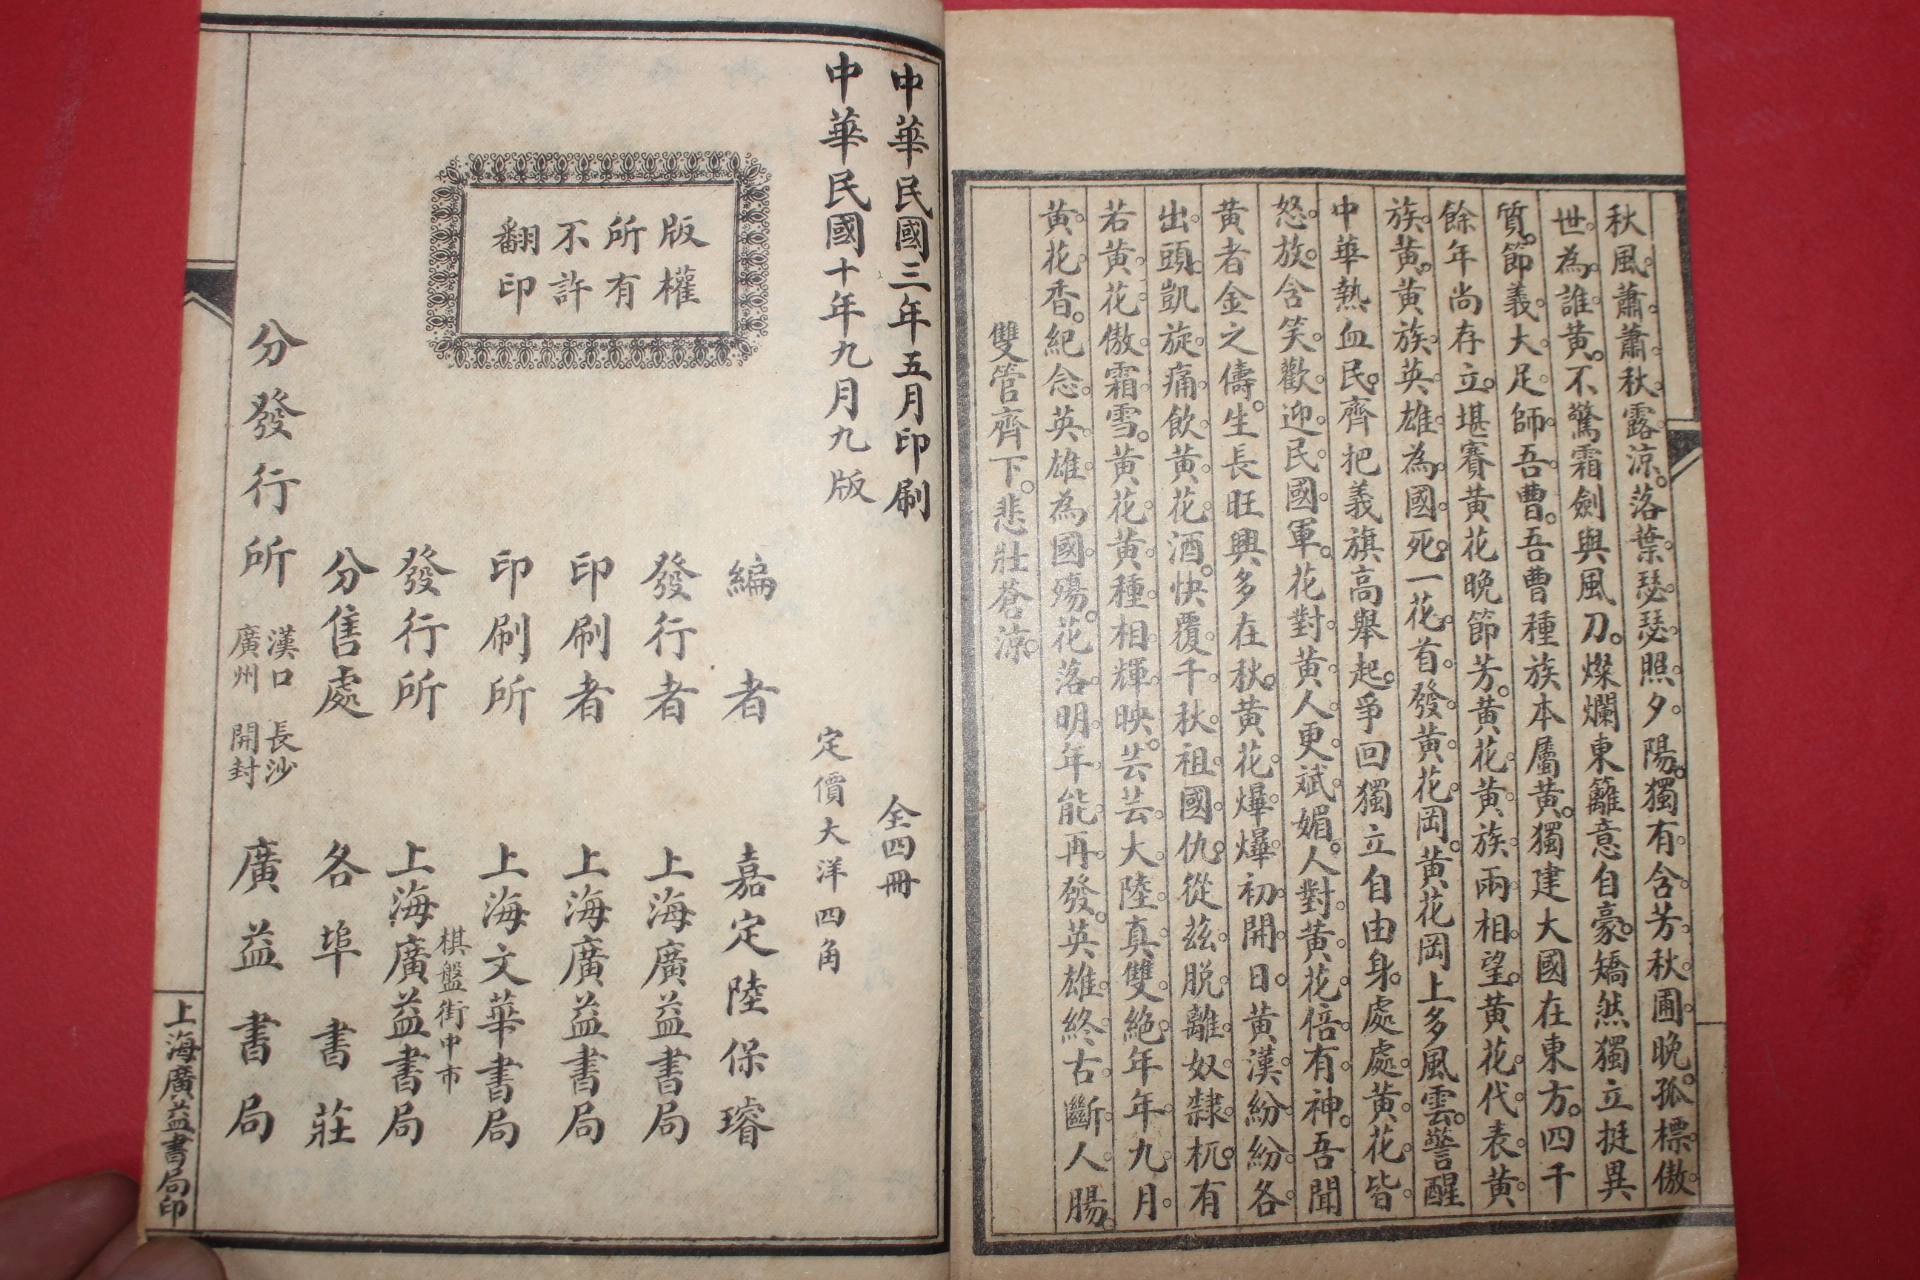 秋風蕭蕭秋露涼。落葉瑟瑟照夕陽。獨有含芳秋圃晚。孤標傲
世為誰黃。不驚霜劍與風刀。燦爛東籬意自豪。矯然獨立挺異
質。節義大足師吾曹。吾曹種族本屬黃。獨建大國在東方。四千
餘年尚存立。堪賽黃花晚節芳。黃花黃族兩相望。黃花代表黃
族黃。黃族英雄為國死。一花首發黃花岡。黃花岡上多風雲。警醒
中華熱血民。齊把義旗高舉起。爭回獨立自由身。處處黃花皆
怒放。含笑歡迎民國軍。花對黃人更斌媚。人對黃花倍有神。吾聞
黃者金之儔。生長旺興多在秋。黃花爗爗初開日。黃漢紛紛各
出頭。凱旋痛飲黃花酒。快覆千秋祖國仇。從茲脫離奴隸杌。有
若黃花傲霜雪。黃花黃種相輝映。芸芸大陸真雙絕。年年九月
黃花香。紀念英雄為國殤。花落明年能再發。英雄終古斷人腸。
雙管齊下。悲壯蒼涼。
中華民國三年五月印刷
中華民國十年九月九版
全四冊
定價大洋四角
版權
所有
不許
翻印
編者 嘉定陸保璿
發行者 上海廣益書局
印刷者 上海廣益書局
印刷所 上海文華書局
棋盤街中市
發行所 上海廣益書局
分售處 各埠書莊
分發行所 漢口 長沙 廣州 開封 廣益書局
上海廣益書局印